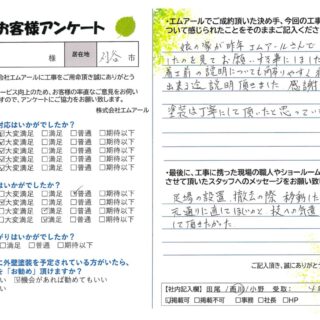 お客様アンケート
様
居在地
会社エムアールに工事をご用命頂き誠にありがとう
ービス向上のため、お客様の率直なご意見をお伺い
すので、アンケートにご協力をお願い致します。
株式会社エムアール
対応はいかがでしたか？
大変満足 □満足 □普通 □期待以下
はいかがでしたか？
大変満足 □満足 □普通 □期待以下
はいかがでしたか？
大変満足 □満足 普通 □期待以下
はいかがでしたか？
大変満足 □満足 □普通 □期待以下
がりはいかがでしたか？
大満足 □普通 □期待以下
に外壁塗装を予定されている方がいたら、
を「お勧め」頂けますか？
い 機会があれば勧めてもいい
・エムアールでご成約頂いた決め手、今回の工事
ついて感じられたことをそのままご記入ください
娘の家が昨年エムアールさんで
したのを見てお願いする事にしました
着工前の説明についても
出来る迄説明頂きました 感謝
塗装は丁寧にして頂いたと思ってい
・最後に、工事に携った現場の職人やショールーム
させて頂いたスタッフへのメッセージをお願い致
足場の設置、撤去の際 移動した
元通りに直してほしい
して頂きたかった
ご記入頂き、誠にありがとう
【社内記入欄】田尾／西川／小野 受取：
掲載可 □掲載不可 □事務 □社長 □HP